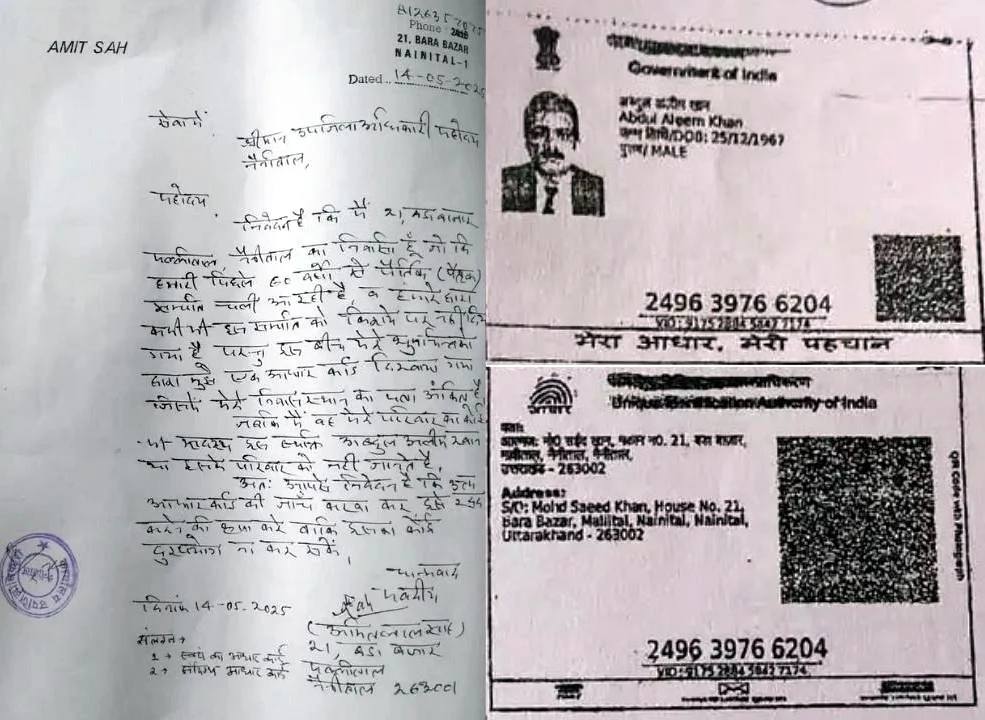 AMIT SAH
Phone :
21, BARA BAZAR
NAINITAL-1
Dated.. 14-05-2025
सेवा में
श्रीमान उपजिलाअधिकारी महोदय
नैनीताल,
महोदय
निवेदन है कि मैं 21, बडा बाजार
मल्लीताल, नैनीताल का निवासी हूँ जो कि
हमारी पिछले 60 वर्षों से पैर्तिक (पैतृक)
सम्पत्ति चली आ रही है, व हमारे द्वारा
कभी भी इस सम्पत्ति को किराये पर नहीं दिया
गया है परन्तु इस बीच मेरे
द्वारा मुझे एक आधार कार्ड दिखाया गया
जिसमें मेरे निवास स्थान का पता अंकित है,
जबकि मैं व मेरे परिवार का कोई
भी सदस्य इस व्यक्ति अब्दुल अलीम खान
या इसके परिवार को नहीं जानते है,
अतः आपसे निवेदन है कि इस
आधारकार्ड की जाँच करवा कर इसे रद्द
करने की कृपा करें ताकि इसका कोई
दुरुपयोग ना कर सकें,
धन्यवाद
भवदीय
दिनांक 14-05-2025
(अमितलाल साह)
21, बडा बाजार
मल्लीताल
नैनीताल 263001
संलग्न→
1→ स्वयं का आधार कार्ड
2→ आधार कार्ड
Government of India
Abdul Aleem Khan
जन्म तिथि/DOB: 25/12/1967
पुरुष/ MALE
2496 3976 6204
VID : 9175 2884 5842 7174
मेरा आधार, मेरी पहचान
आधार
Unique Identification Authority of India
पता:
आत्मज: मो0 सईद खान, मकान न0. 21, बड़ा बाज़ार,
मल्लीताल, नैनीताल, नैनीताल,
उत्तराखण्ड - 263002
Address:
S/O: Mohd Saeed Khan, House No. 21,
Bara Bazar, Mallital, Nainital, Nainital,
Uttarakhand - 263002
2496 3976 6204
VID : 9175 2884 5842 7174